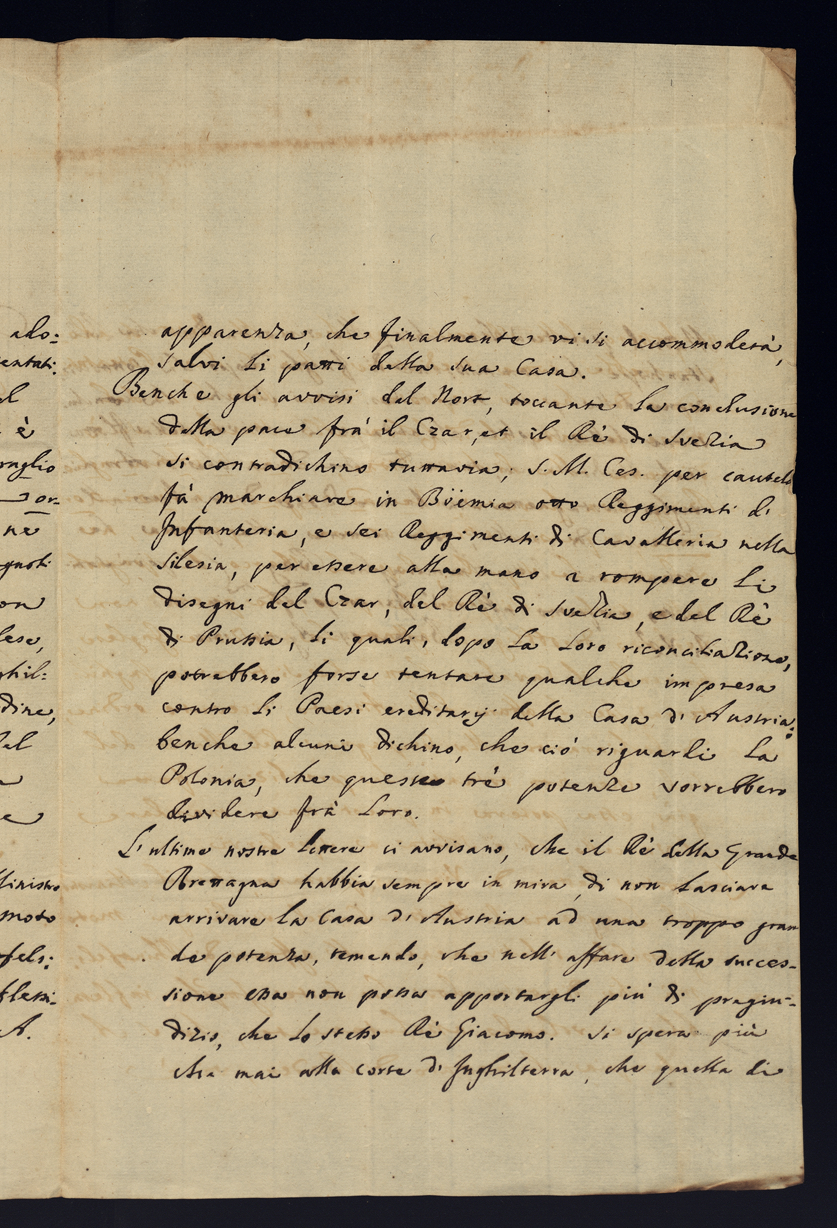 ado:
entati:
el
è
raglio
or-
ne
gnoti
on
lese,
ghil:
dine,
del
a
e
Ministro
moto
ofels:
flessi-
A.
apparenza, che finalmente vi si accommoderà,
salvi li patti della sua Casa.
Benche gli avvisi del Nort, toccante la conclusione
della pace frà il Czar, et il Rè di Svezia
si contradichino tuttavia; S. M. Ces. per cautela
fà marchiare in Böemia otto Reggimenti di
Infanteria, e sei Reggimenti di Cavalleria nella
Silesia, per essere alla mano a rompere li
disegni del Czar, del Rè di Svezia, e del Rè
di Prussia, li quali, dopo la loro riconciliazione,
potrebbero forse tentare qualche impresa
contro li Paesi ereditarij della Casa d'Austria;
benche alcuni dichino, che ciò riguardi la
Polonia, che queste trè potenze vorrebbero
dividere frà loro.
L'ultime nostre lettere ci avvisano, che il Rè della Grande
Brettagna habbia sempre in mira, di non lasciare
arrivare la Casa d'Austria ad una troppo gran
de potenza, temendo, che nell'affare della succes-
sione essa non possa apportargli più di pregiu-
dizio, che lo stesso Rè Giacomo. Si spera più
che mai alla corte d'Inghilterra, che quella di